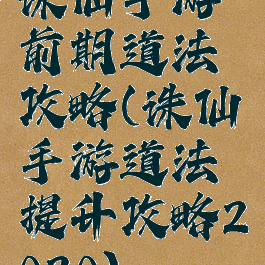 诛仙手游
前期道法
攻略(诛仙
手游道法
提升攻略2
020)